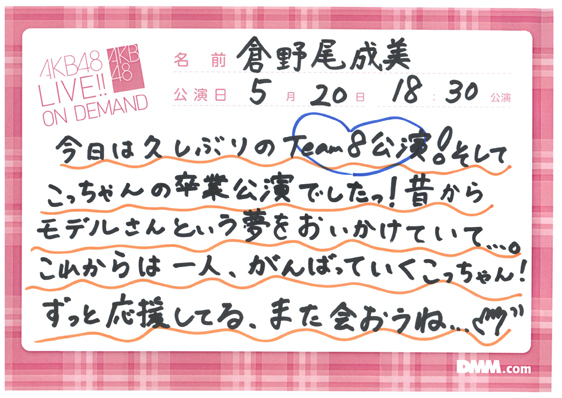 AKB48
LIVE!!
ON DEMAND
AKB
48
名前 倉野尾成美
公演日 5月20日 18:30公演
今日は久しぶりのTeam8公演!そして
こっちゃんの卒業公演でしたっ!昔から
モデルさんという夢をおいかけていて...。
これからは一人、がんばっていくこっちゃん!
ずっと応援してる、また会おうね...
DMM.com